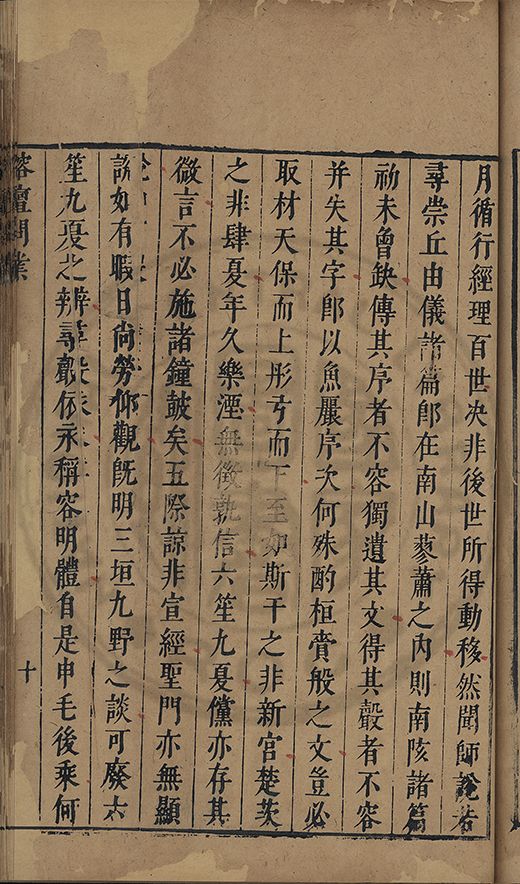 月循行經理百世决非後世所得動移然聞師說若
尋崇丘由儀諸篇郎在南山蓼蕭之内則南陔諸篇
初未曾缺傳其序者不容獨遺其文得其殼者不容
并失其字郎以魚麗序次何殊酌桓賚般之文豈必
取材天保而上彤弓而下至如斯干之非新宮楚茨
之非肆夏年久樂湮無徵孰信六笙九夏儻亦存其
微言不必施諸鐘鼓矣五際諒非宣經聖門亦無顯
說如有暇日尚勞仰觀旣明三垣九野之談可廢六
笙九夏之辨尋
依永稱容明體自是申毛後乘何
榕壇問業
十